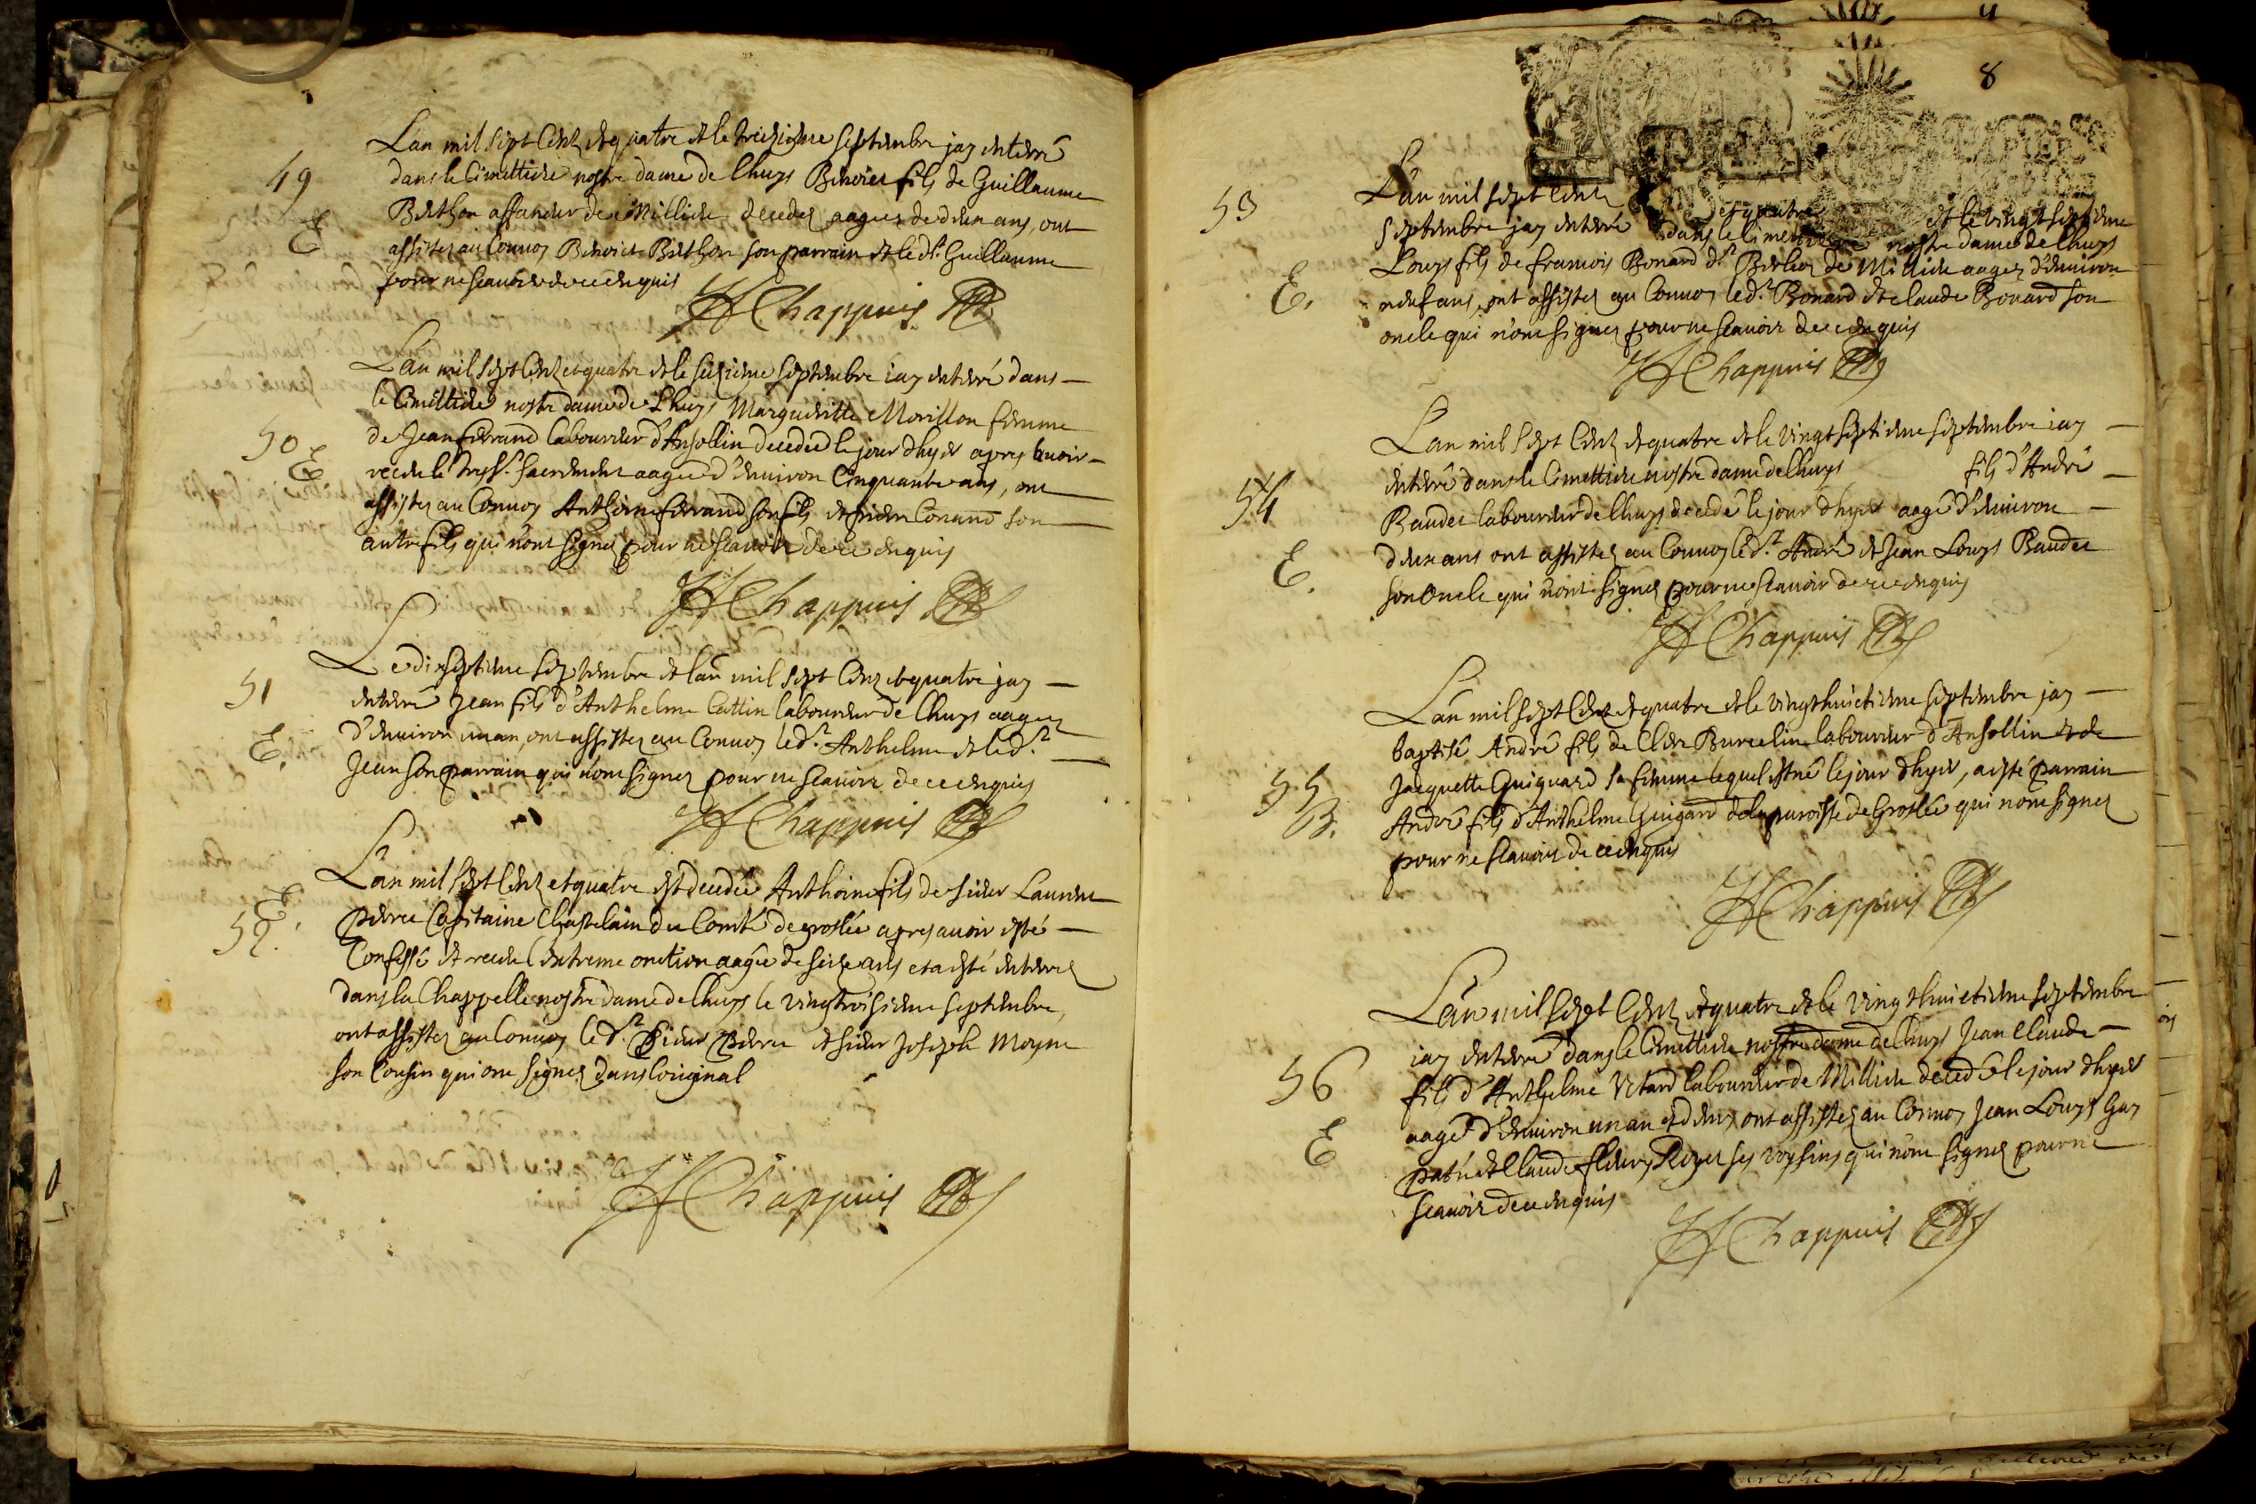 49
E
Lan mil sept Centz et quatre et le treizieme septembre jay enterré
dans le Cimettiere nostre dame de lhuys Benoict fils de Guillaume
Berthon affaneur de Millieu decedez aagez de deux ans, ont
assistez au Convoy Benoict Berthon son parrain et le dt. Guillaume
pour ne scavoir de ce enquis
Chappuis
50
E
Lan mil sept Centz et quatre et le seizieme septembre iay enterré dans
le Cimettiere nostre dame de Lhuys Margueritte Morillon femme
de Jean ferrand labourier d'Ansollin decedée le jour dhyer apres avoir
receu le tress. sacrement aagée d'environ Cinquante ans, ont
assistez au Convoy Anthoine ferrand son fils et Conand son
autre fils qui n'ont signez pour ne scavoir de ce enquis
Chappuis
51
E.
Le dixseptieme septembre et lan mil sept Centz et quatre jay
enterré Jean fils d'Anthelme Cattin labourier de lhuys aagez
d'environ un an, ont assistez au Convoy led. Anthelme et led.
Jean son parrain qui n'ont signez pour ne scavoir de ce enquis
Chappuis
E.
52.
Lan mil sept Centz et quatre est decedée Anthoine fils de sieur Laurent
Pierre Capitaine Chastelain du Comté de groslée apres avoir esté
Confessé et receu l'extreme onction aagée de seize ans et a esté enterrez
dans la Chappelle nostre dame de lhuys le vingtroisieme septembre,
ont assistez au Convoy led. sieur Pierre et sieur Joseph Moyne
son Cousin qui ont signez dans loriginal
Chappuis
4
8
53
E.
Lan mil sept Centz et quatre et le vingt septieme
septembre jay enterré dans le Cimettiere nostre dame de lhuys
Louys fils de francois Bonard dt. Berlioz de Millieu aagez d'environ
neuf ans, ont assistez au Convoy led. Bonard et claude Bonard son
oncle qui n'ont signez pour ne scavoir de ce enquis
Chappuis
54
E.
Lan mil sept Centz et quatre et le vingt septieme septembre iay
enterré dans le Cimettiere nostre dame de lhuys fils d'André
Baudet labourier de lhuys decedé le jour dhyer aagé d'environ
deux ans ont assistez au Convoy led. André et Jean Louys Baudet
son Oncle qui n'ont signez pour ne scavoir de ce enquis
Chappuis
55
B.
Lan mil sept Centz et quatre et le vingthuictieme septembre jay
baptisé André fils de Burcelin labourier d'Ansollin et de
Jacquette Guiguard sa femme lequel est né le jour dhyer, a esté parrain
André fils d'Anthelme Guigard de la paroisse de Groslée qui n'ont signez
pour ne scavoir de ce enquis
Chappuis
56
E
Lan mil sept Centz et quatre et le vingthuictieme septembre
iay enterré dans le Cimettiere nostre dame de lhuys Jean Claude
fils d'Anthelme labourier de Millieu decedé le jour dhyer
aagé d'environ un an et demy ont assistez au Convoy Jean Louys Guy
et Claude fleury ses voysins qui n'ont signez pour ne
scavoir de ce enquis
Chappuis